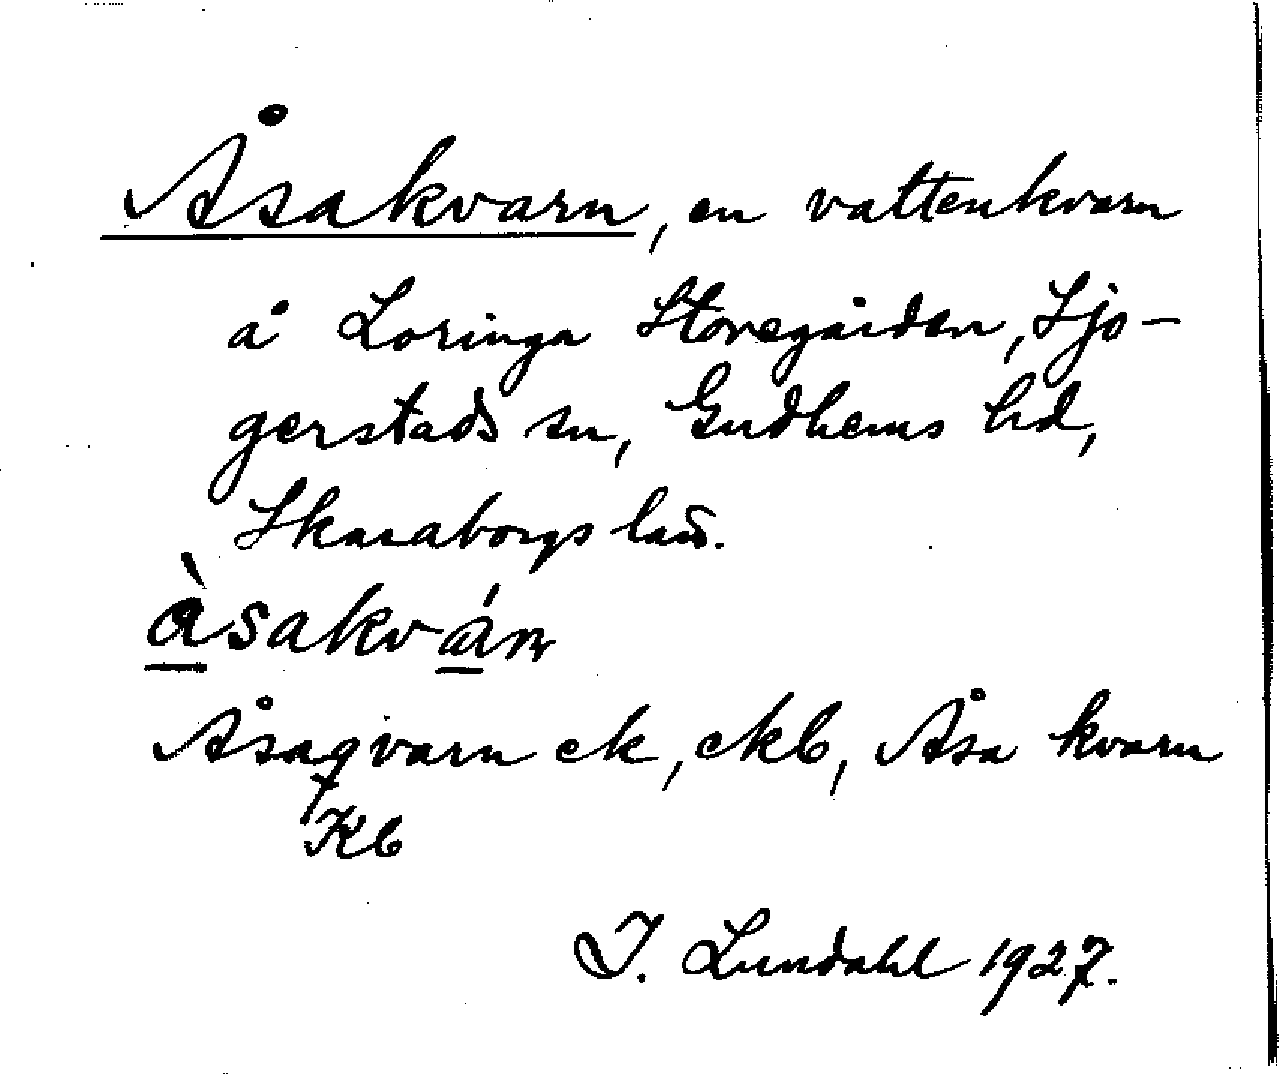 Åsakvarn, en vattenkvarn
å Loringa Storegården, Sjo-
gerstads sn, Gudhems hd,
Skaraborgs län.
àsakván
Åsaqvarn ek, ekb, Åsa kvarn
Kb
I. Lundahl 1927.